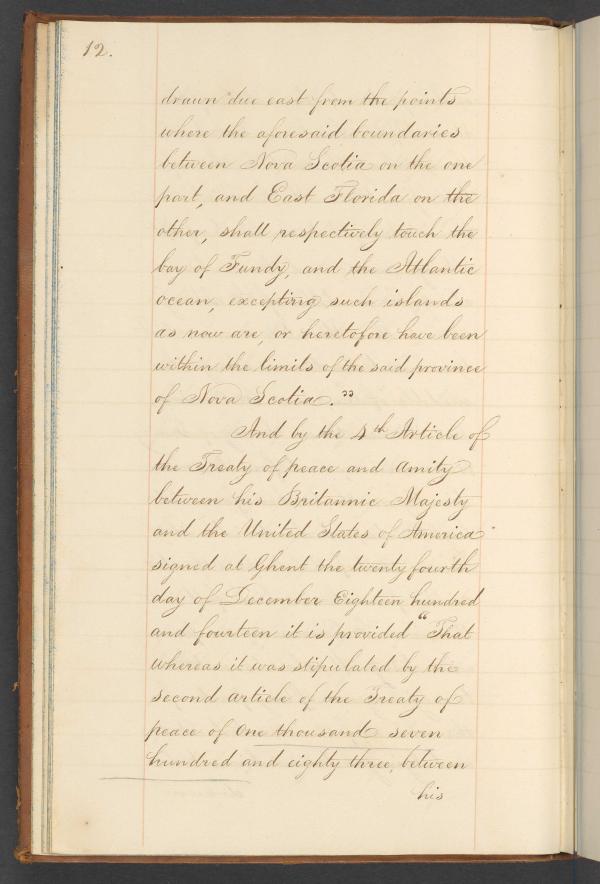 12.
drawn due east from the points
where the aforesaid boundaries
between Nova Scotia on the one
part, and East Florida on the
other, shall respectively touch the
bay of Fundy, and the Atlantic
ocean, excepting such islands
as now are, or heretofore have been
within the limits of the said province
of Nova Scotia."
And by the 4th Article of
the Treaty of peace and Amity
between his Britannic Majesty
and the United States of America
signed at Ghent the twenty fourth
day of December Eighteen hundred
and fourteen it is provided "That
whereas it was stipulated by the
second article of the Treaty of
peace of One thousand seven
hundred and eighty three, between
his